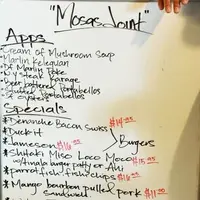 "Mosqs Joint"
Apps
Cream of Mushroom Soup
Marlin Kelequan
DF Marlin Poke
NY Steak
Beer battered
Stuffed Portabellos
Specials
*Devanche Bacon Swiss $14.95
*Duck it
*Jameson $16.95
Burgers
*Shitaki Miso Loco Moco $15.95
w/ maine burger patty or Ahi
*Parrotfish fish/chips $16.95
*Mango bourbon pulled pork $11.50
Sandwell